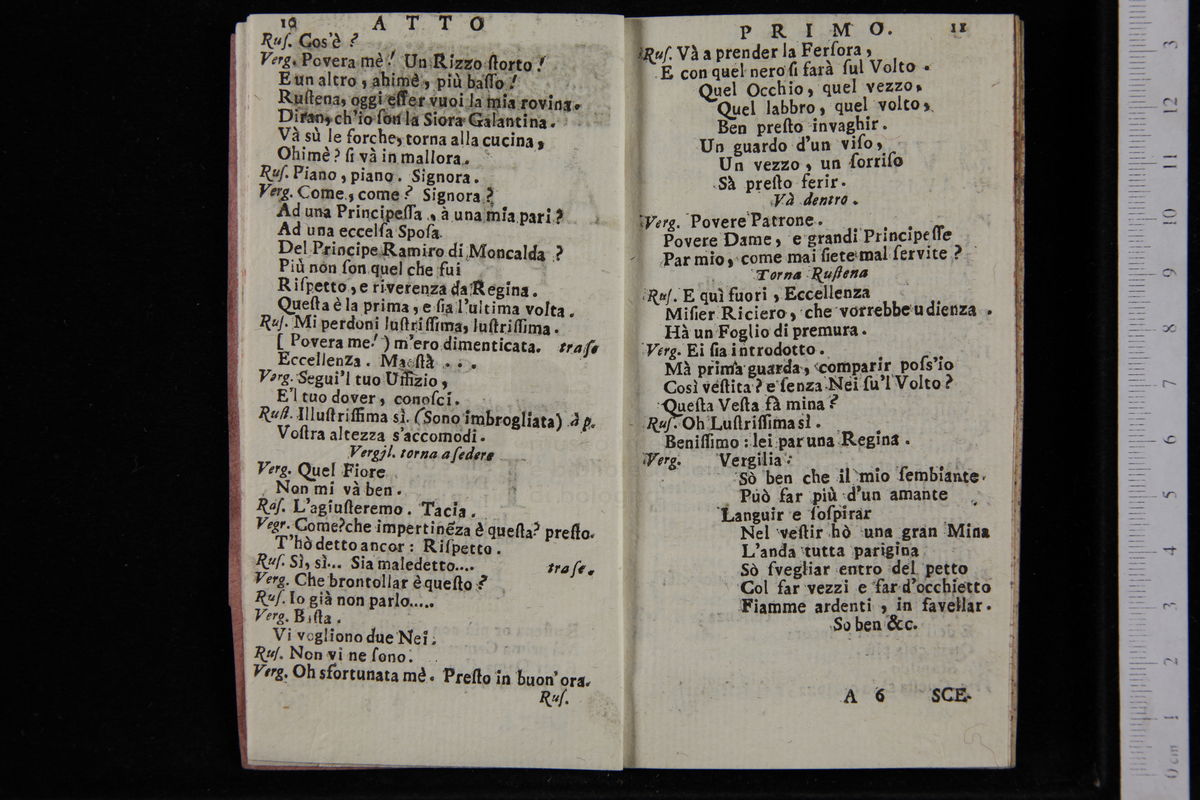 10 ATTO
Ruſ. Cos'è ?
Verg. Povera mè! Un Rizzo ſtorto !
E un altro, ahimè, più baſſo !
Ruſtena, oggi eſſer vuoi la mia rovina.
Diran, ch'io ſon la Siora Galantina.
Và sù le forche, torna alla cucina,
Ohimè? ſi và in mallora.
Ruſ. Piano, piano. Signora.
Verg. Come, come? Signora ?
Ad una Principeſſa, à una mia pari ?
Ad una eccelſa Spoſa
Del Principe Ramiro di Moncalda ?
Più non ſon quel che fui
Riſpetto, e riverenza da Regina.
Queſta è la prima, e ſia l'ultima volta.
Ruſ. Mi perdoni luſtriſſima, luſtriſſima.
[ Povera me! ) m'ero dimenticata. traſe
Eccellenza. Maeſtà . . .
Verg. Segui'l tuo Uffizio,
E'l tuo dover, conoſci.
Ruſt. Illuſtriſſima sì. (Sono imbrogliata) à p.
Voſtra altezza s'accomodi.
Vergil. torna a ſedere
Verg. Quel Fiore
Non mi và ben.
Raſ. L'agiuſteremo. Tacia.
Vegr. Come? che impertinẽza è queſta? preſto.
T'hò detto ancor : Riſpetto.
Ruſ. Sì, sì... Sia maledetto.... tra ſe.
Verg. Che brontollar è queſto ?
Ruſ. Io già non parlo.....
Verg. Baſta.
Vi vogliono due Nei.
Ruſ. Non vi ne ſono.
Verg. Oh sfortunata mè. Preſto in buon' ora.
Ruſ.
PRIMO. 11
Ruſ. Và a prender la Ferſora,
E con quel nero ſi farà ſul Volto.
Quel Occhio, quel vezzo,
Quel labbro, quel volto,
Ben preſto invaghir.
Un guardo d'un viſo,
Un vezzo, un ſorriſo
Sà preſto ferir.
Và dentro.
Verg. Povere Patrone.
Povere Dame, e grandi Principeſſe
Par mio, come mai ſiete mal ſervite ?
Torna Ruſtena
Ruſ. E quì fuori, Eccellenza
Miſier Riciero, che vorrebbe udienza.
Hà un Foglio di premura.
Verg. Ei ſia introdotto.
Mà prima guarda, comparir poſs'io
Così veſtita? e ſenza Nei ſu'l Volto?
Queſta Veſta fà mina?
Ruſ. Oh Luſtriſſima sì.
Beniſſimo : lei par una Regina.
Verg. Vergilia :
Sò ben che il mio ſembiante
Può far più d'un amante
Languir e ſoſpirar
Nel veſtir hò una gran Mina
L'anda tutta parigina
Sò ſvegliar entro del petto
Col far vezzi e far d'occhietto
Fiamme ardenti, in favellar.
So ben &c.
A 6 SCE-